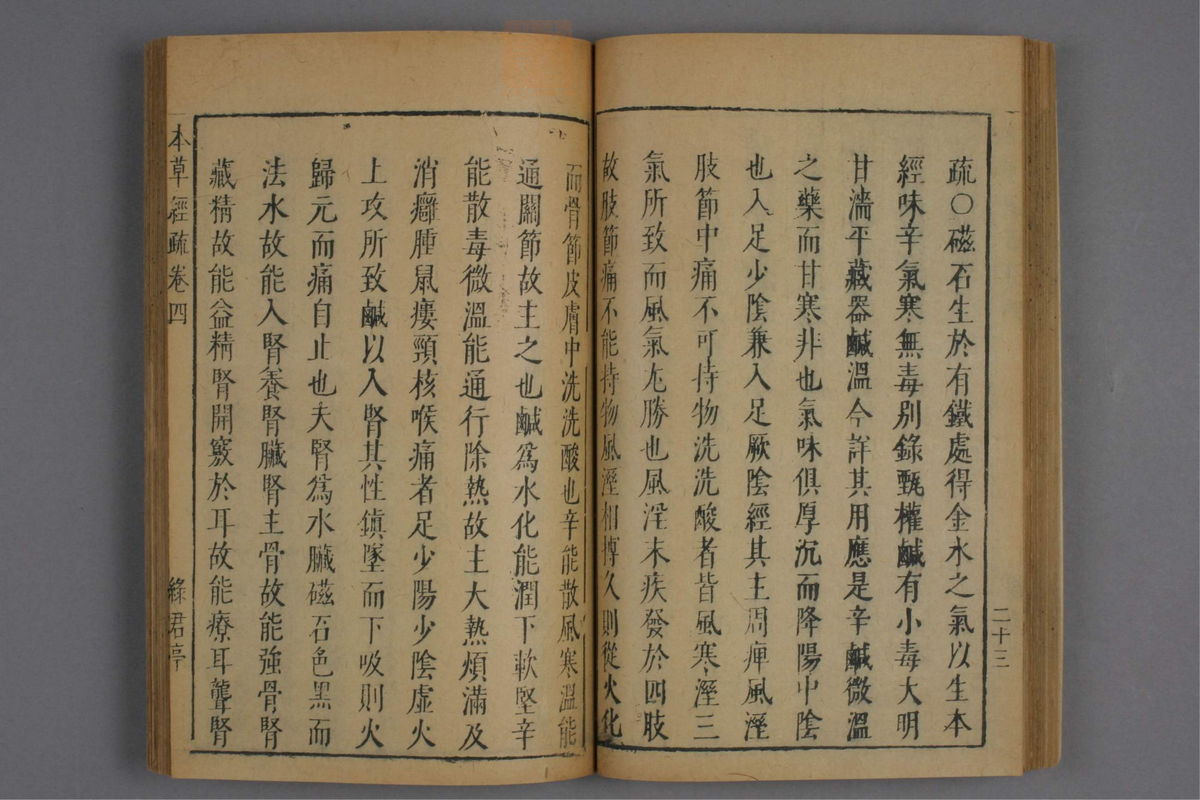 二十三
疏○磁石生於有鐵處得金水之氣以生本
經味辛氣寒無毒别錄甄權鹹有小毒大明
甘濇平藏器鹹温今詳其用應是辛鹹微温
之藥而甘寒非也氣味俱厚沉而降陽中陰
也入足少陰兼入足厥陰經其主周痺風溼
肢節中痛不可持物洗洗酸者皆風寒溼三
氣所致而風氣尤勝也風淫末疾發於四肢
故肢節痛不能持物風溼相搏久則從火化
而骨節皮膚中洗洗酸也辛能散風寒温能
通關節故主之也鹹爲水化能潤下軟堅辛
能散毒微温能通行除熱故主大熱煩滿及
消癰腫鼠瘻頸核喉痛者足少陽少陰虚火
上攻所致鹹以入腎其性鎮墜而下吸則火
歸元而痛自止也夫腎爲水臟磁石色黑而
法水故能入腎養腎臟腎主骨故能強骨腎
藏精故能益精腎開竅於耳故能療耳聾腎
本草經疏卷四
綠君亭